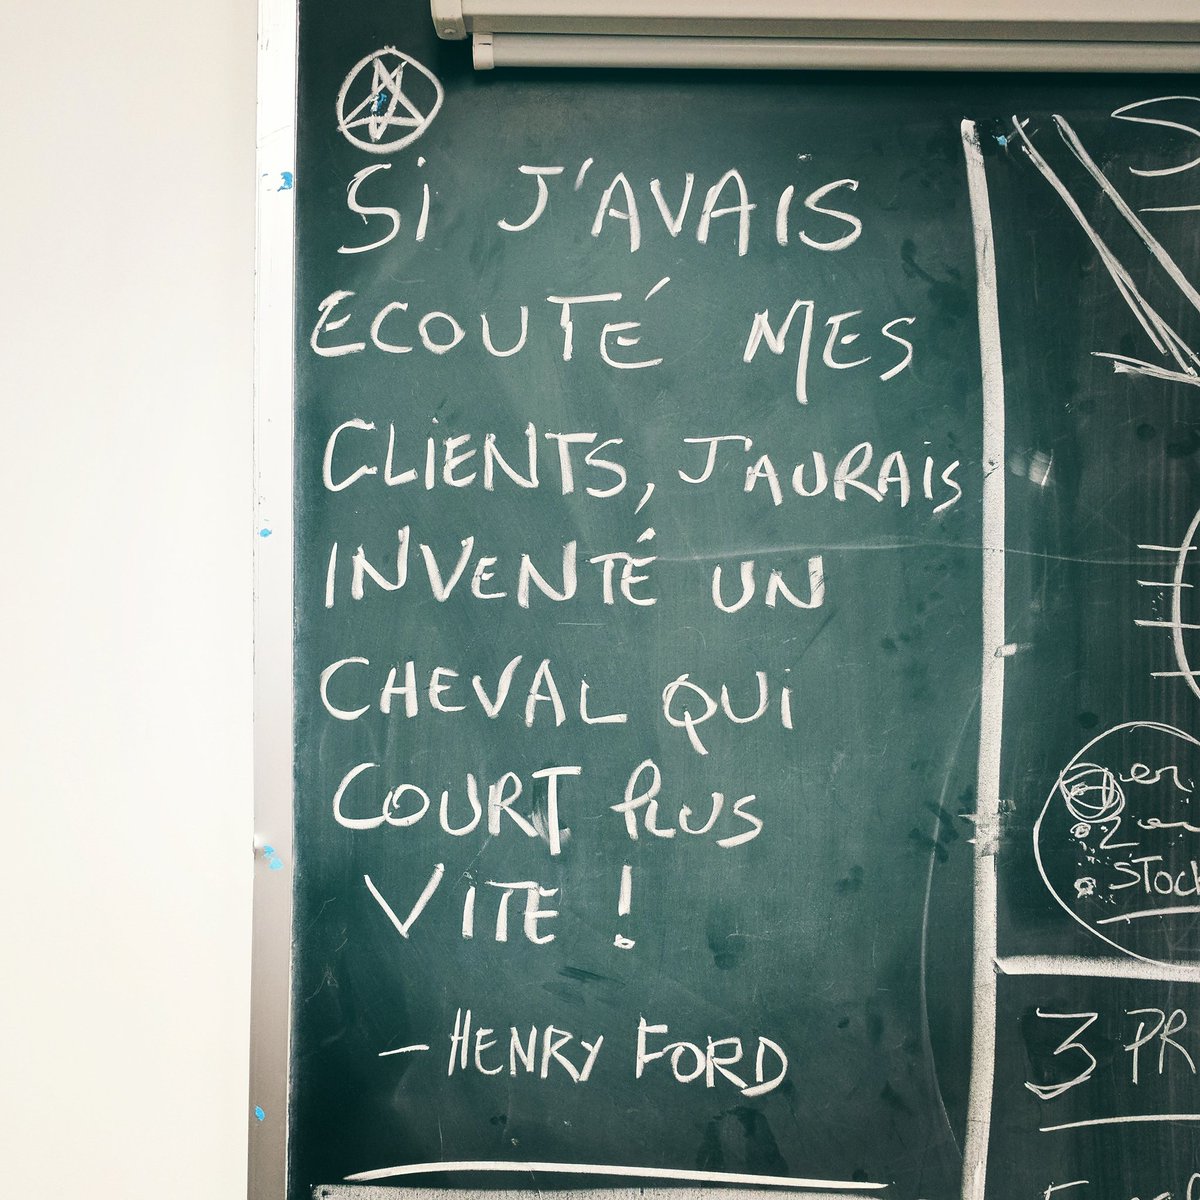 Si J'AVAIS
ECOUTÉ MES
CLIENTS, J'AURAIS
INVENTÉ UN
CHEVAL QUI
COURT PLUS
VITE !
- HENRY FORD
en
2
STOCK
3 PR